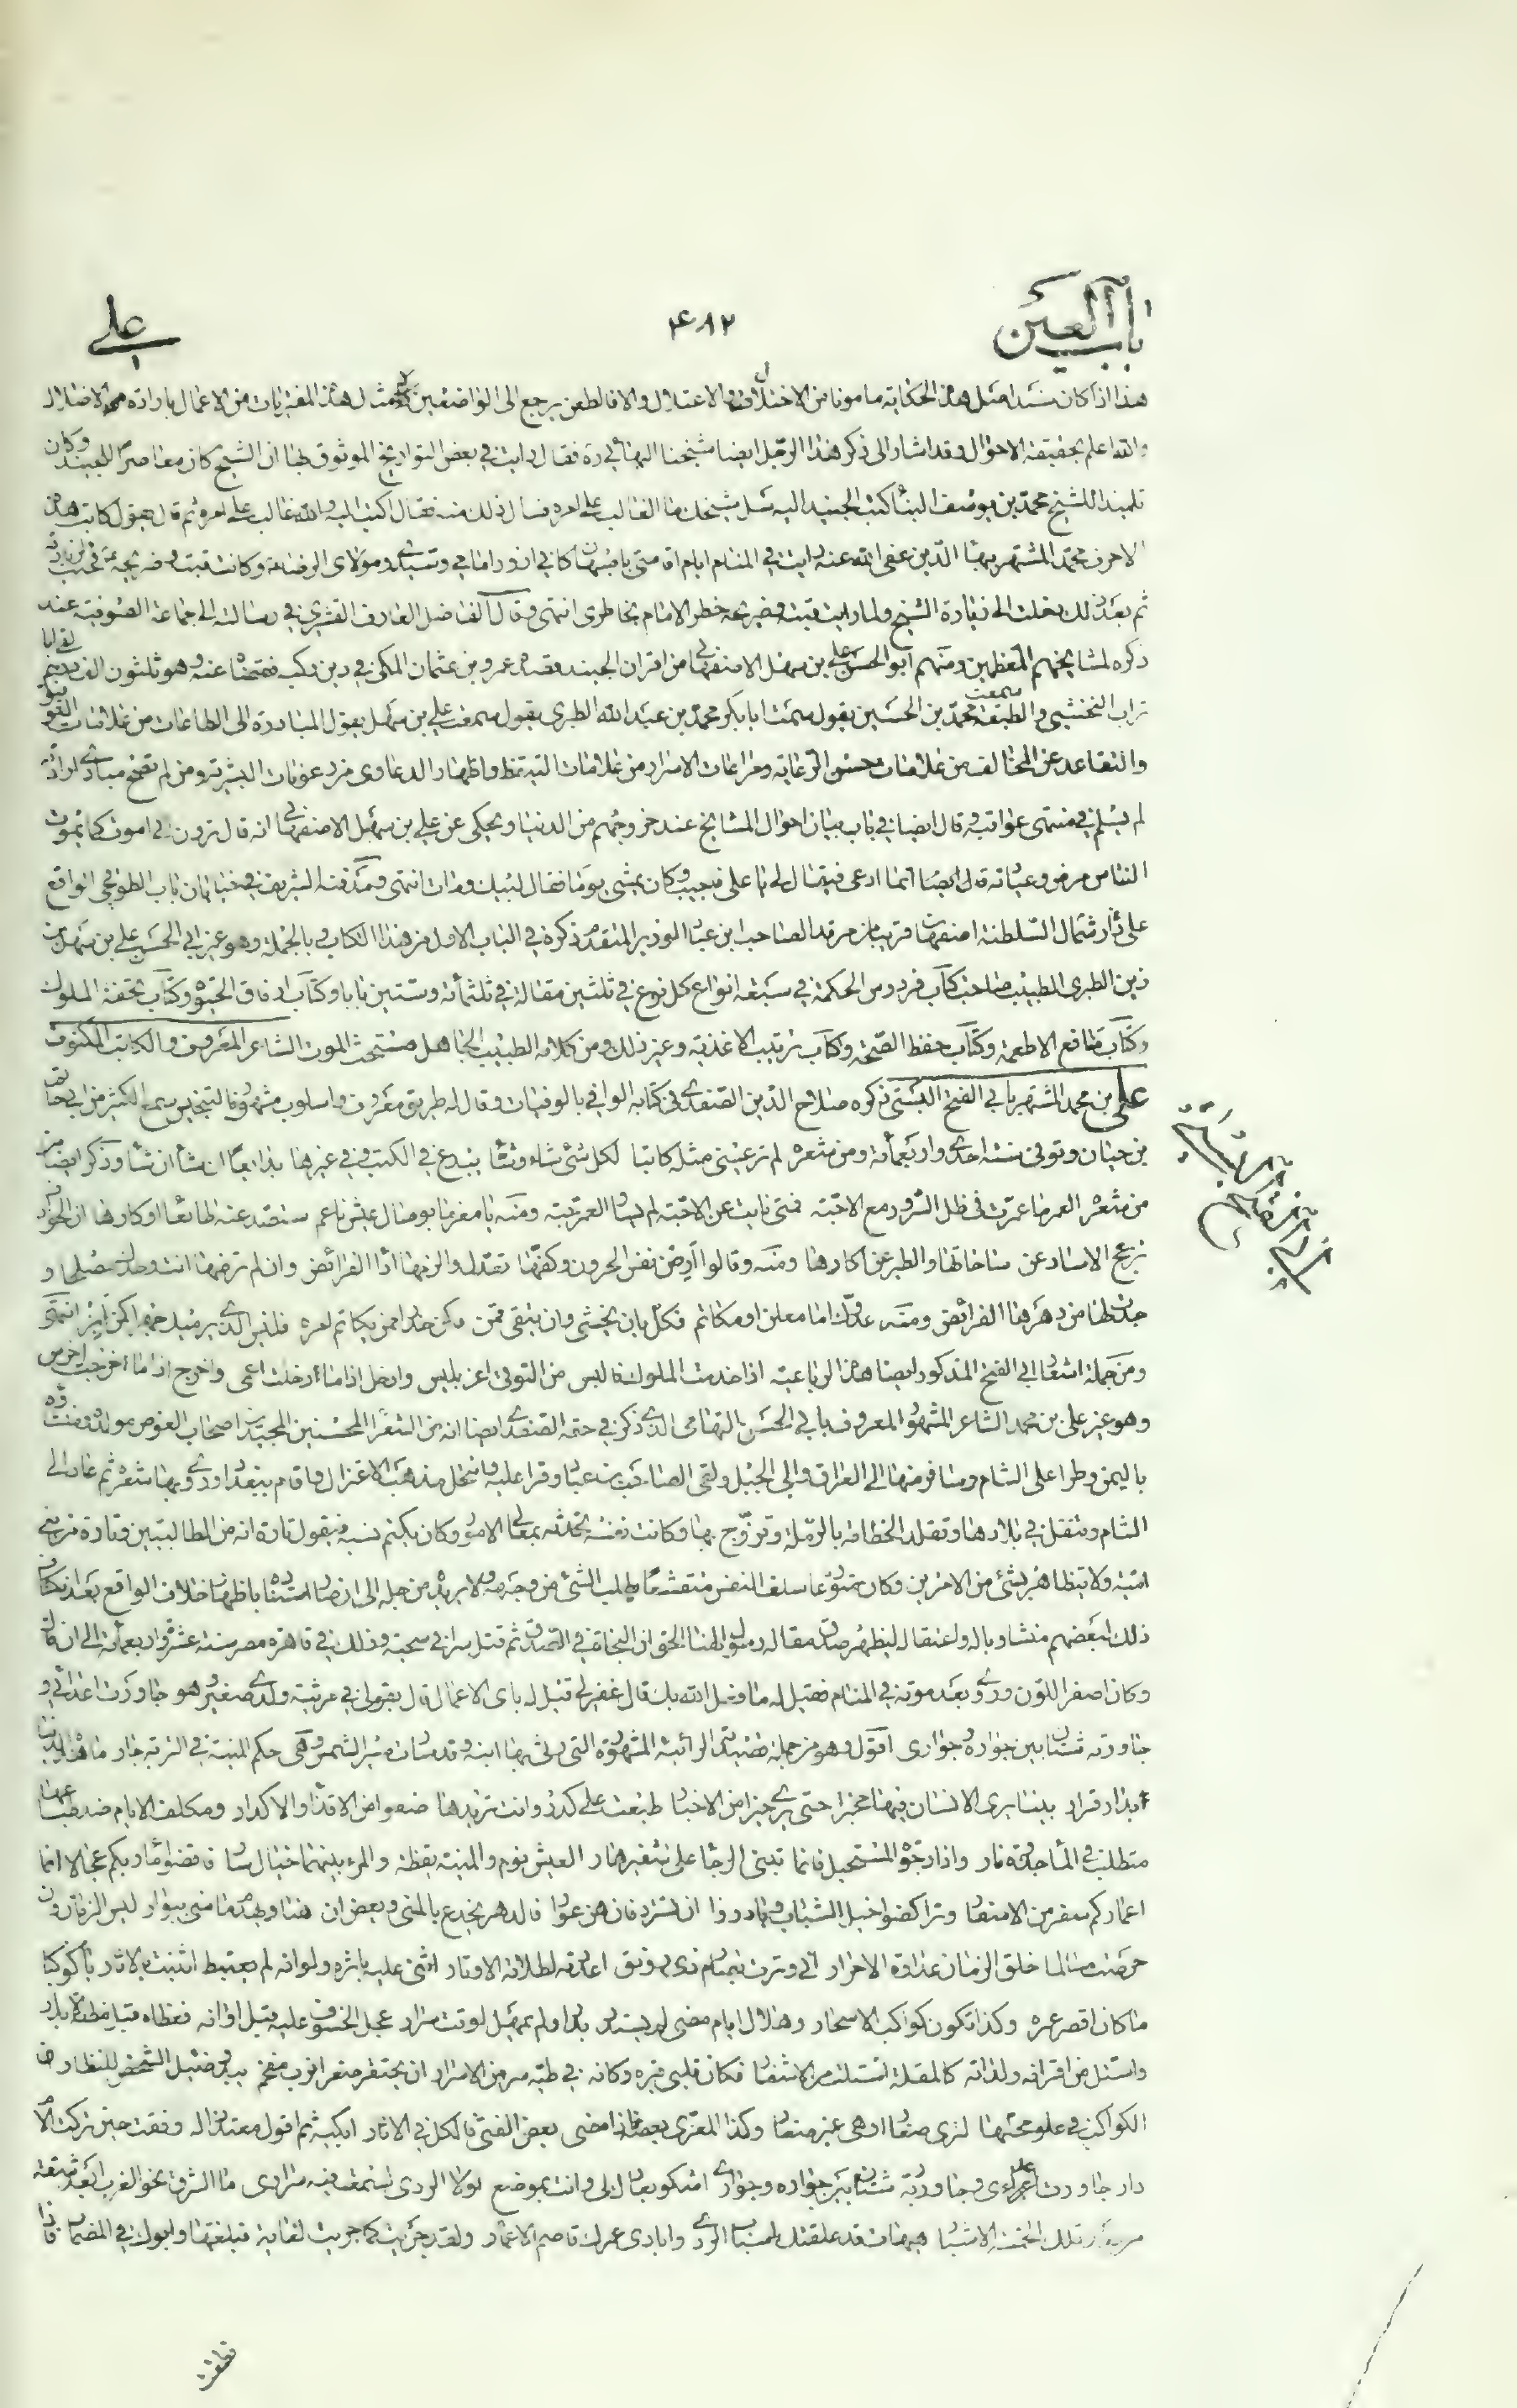 باب العين
۴۸۲
علي
هذا اذا كان سند امثل هذه الحكاية مامونا من الاختلاق والاعتلال والا فالطعن يرجع الى الواضعين مثل هذه المفتريات من الاعمال بارادة الاضلال
والله اعلم بحقيقة الاحوال وقد اشار الى ذكر هذا الرجل ايضا شيخنا البهائي ره فقال رايت في بعض التواريخ الموثوق بها ان الشيخ كان معاصرا للجنيد وكان
تلميذا للشيخ محمد بن يوسف البنا كتب الجنيد اليه سل شيخك ما الغالب على امره فسال ذلك منه فقال اكتب اليه والله غالب على امره ثم قال يقول كاتب هذه
الاحرف محمد المشتهر ببهاء الدين عفى الله عنه رايت في المنام ايام اقامتي باصبهان كاني ازور امامي وسيدي ومولاي الرضا وكانت قبته وضريحه
ثم بعد ذلك دخلت الى زيارة الشيخ ولما رايت قبته وضريحه خطر الامام بخاطري انتهى وقال الفاضل العارف القشيري في رسالته الى جماعة الصوفية عند
ذكره لمشايخهم المعظمين ومنهم ابو الحسن علي بن سهل الاصفهاني من اقران الجنيد قصده عمرو بن عثمان المكي في دين ركبه فقضاه عنه وهو ثلثون الف درهم لقي ابا
تراب النخشبي والطبقة سمعت محمد بن الحسين يقول سمعت ابا بكر محمد بن عبد الله الطبري يقول سمعت علي بن سهل يقول المبادرة الى الطاعات من علامات التوفيق
والتقاعد عن المخالفة من علامات حسن الرعاية ومراعات الاسرار من علامات التيقظ واظهار الدعاوى من رعونات البشرية ومن لم تصح مبادي ارادته
لم يسلم في منتهى عواقبه وقال ايضا في باب بيان احوال المشايخ عند خروجهم من الدنيا ويحكى عن علي بن سهل الاصفهاني انه قال ترون اني اموت كما يموت
الناس مرض وعيادة انما ادعى فيقال لي يا علي فاجيب وكان يمشي يوما فقال لبيك ومات انتهى ومرقده الشريف في خيابان باب الطوقچي الواقع
على شمال السلطنة اصفهان قريبا من مرقد الصاحب ابن عباد الوزير المتقدم ذكره في الباب الاول من هذا الكتاب وبالجملة وهو غير ابي الحسن علي بن سهل بن
زين الطبري الطبيب صاحب كتاب فردوس الحكمة في سبعة انواع كل نوع في ثلثين مقالة في ثلثمائة وستين بابا وكتاب ارفاق الحيوة وكتاب تحفة الملوك
وكتاب منافع الاطعمة وكتاب حفظ الصحة وكتاب ترتيب الاغذية وغير ذلك ومن كلامه الطبيب الجاهل مستحث الموت الشاعر المعروف والكاتب
علي بن محمد المشتهر بابي الفتح البستي ذكره صلاح الدين الصفدي في كتابه الوافي بالوفيات وقال له طريق معروف واسلوب مشهور في التجنيس سمع الكثير من ابي حاتم
بن حبان وتوفى سنة احدى واربعمائة ومن شعره لم تر عيني مثله كاتبا لكل شئ شاء وشاء يبدع في الكتب وفي غيرها بدايعا ان شاء ان شاء وذكر ايضا من
من شعره العمر ما عمرت في ظل السرور مع الاحبة فمتى نايت عن الاحبة لم يساو العمر حبة ومنه يا مغرما بوصال عيش ناعم ستصد عنه طائعا او كارها ان الحوادث
تزعج الاساد عن ساحاتها والطير عن اوكارها ومنه وقالوا ارض نفس الحرون وكفها تعدل والزمها اداء الفرائض وان لم ترضها انت وحدك مصلحا و
جدتها من دهرها الفرائض ومنه عدوك اما معلن او مكاتم فكل بان يخشى وان يتقى قمن وكن حذرا ممن يكاتم امره فليس الذي يرميك جهرا كمن كمن انتهى
ومن جملة اشعار ابي الفتح المذكور ايضا هذه الرباعية اذا خدمت الملوك فالبس من التوقي اعز ملبس وادخل اذا ما دخلت اعمى واخرج اذا ما خرجت اخرس
وهو غير علي بن محمد الشاعر المشهور المعروف بابي الحسن التهامي الذي ذكر في حقه الصفدي ايضا انه من الشعراء المحسنين المجيدين اصحاب الغوص مولده ومنشاؤه
باليمن وطرا على الشام وسافر منها الى العراق والى الجبل ولقى الصاحب بن عباد وقرا عليه وانتحل مذهب الاعتزال واقام ببغداد وروى بها شعره ثم عاد الى
الشام وتنقل في بلادها وتقلد الخطابة بالرملة وتزوج بها وكانت نفسه تحدثه بمعالي الامور وكان يكتم نسبه فيقول تارة انه من الطالبيين وتارة من بني
امية ولا يتظاهر بشئ من الامرين وكان متورعا صلف النفس متقشفا يطلب الشئ من وجهه
وكان اصفر اللون ورؤى بعد موته في المنام فقيل له ما فعل الله بك قال غفر لي قيل له باي الاعمال قال بقولي في مرثية ولدي صغير وهو جاورت اعدائي و
جاور ربه شتان بين جواره وجواري اقول وهو من جملة قصيدته الرائية المشهورة التي رثى بها ابنه وقد سارت مسير الشمس وهي حكم المنية في البرية جار ما هذه الدنيا
بدار قرار بينا يرى الانسان فيها مخبرا حتى يرى خبرا من الاخبار طبعت على كدر وانت تريدها صفوا من الاقذاء والاكدار ومكلف الايام ضد طباعها
متطلب في الماء جذوة نار واذا رجوت المستحيل فانما تبني الرجاء على شفير هار العيش نوم والمنية يقظة والمرء بينهما خيال سار فاقضوا ماربكم عجالا انما
اعماركم سفر من الاسفار وتراكضوا خيل الشباب وبادروا ان تسترد فانهن عوار فالدهر يخدع بالمنى ويغص ان هنا ويهدم ما بنى ببوار ليس الزمان وان
حرصت مسالما خلق الزمان عداوة الاحرار اني وترت بصارم ذي رونق اعددته لطلابة الاوتار اثنى عليه باثره ولو انه لم يغتبط اثنيت بالاثار يا كوكبا
ما كان اقصر عمره وكذا تكون كواكب الاسحار وهلال ايام مضى لم يستدر بدرا ولم يمهل لوقت سرار عجل الخسوف عليه قبل اوانه فغطاه قبل مظنة الابدار
واستل من اقرانه ولداته كالمقلة استلت من الاشفار فكان قلبي قبره وكانه في طيه سر من الاسرار ان يحتقر صغر فرب مفخم يبدو ضئيل الشخص للنظار ان
الكواكب في علو محلها لترى صغارا وهي غير صغار وكذا المعزى بعضه فاذا مضى بعض الفتى فالكل في الاثار ابكيه ثم اقول معتذرا له وفقت حين تركت الام
دار جاورت اعدائي وجاور ربه شتان بين جواره وجواري اشكو بعادك لي وانت بموضع لولا الردى لسمعت فيه مزاري ما الشرق نحو الغرب ابعد شقة
من بعد تلك الخمسة الاشبار هيهات قد علقتك اسباب الردى وابادى عمرك قاصم الاعمار ولقد جريت كما جريت لغاية فبلغتها وابوك في المضمار فاذا